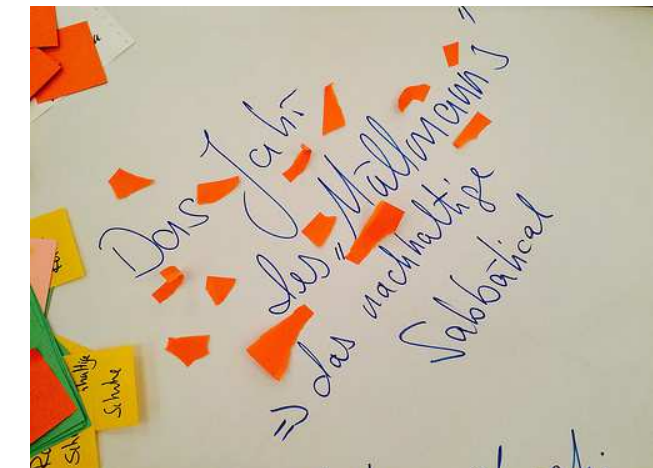 Das Jahr
des "Müllmanns"
=> das nachhaltige
Sabbatical
Schuhe